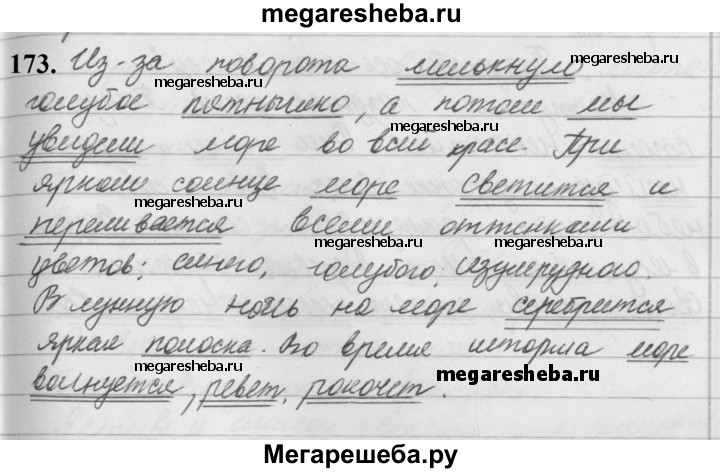 megaresheba.ru
173. Из-за поворота мелькнуло
megaresheba.ru
megaresheba.ru
голубое пятнышко, а потом мы
megaresheba.ru
увидели море во всей красе. При
ярком солнце море светится и
megaresheba.ru
megaresheba.ru
переливается всеми оттенками
megaresheba.ru
megaresheba.ru
цветов: синего, голубого, изумрудного.
В лунную ночь на море серебрится
яркая полоска. Во время шторма море
волнуется, ревет, рокочет.
megaresheba.ru
megaresheba.ru
Мегарешеба.ру